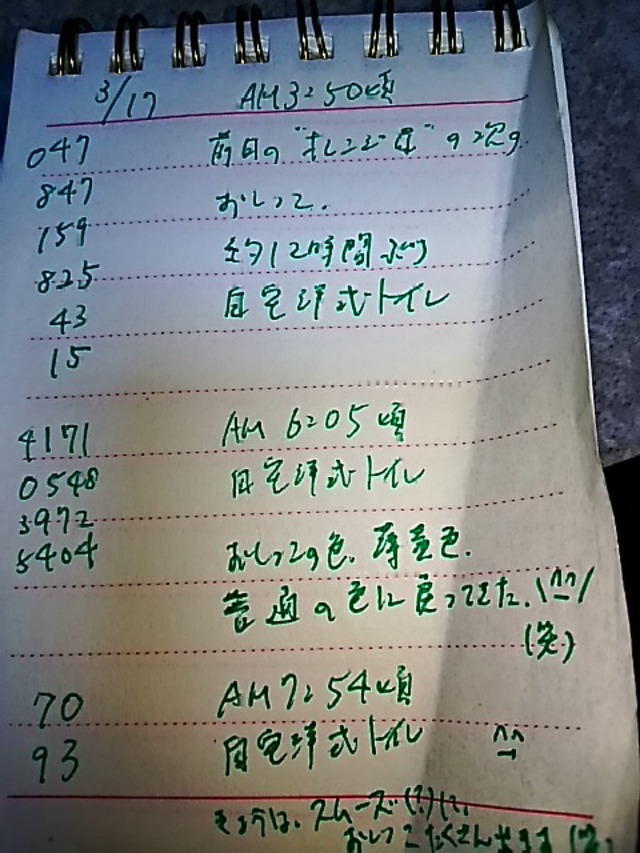 3/17 AM3:50頃
047 前日の"オレンジ色"の次の
847 おしっこ.
159 約12時間ぶり
825 自宅洋式トイレ
43
15
4171 AM 6:05頃
0548 自宅洋式トイレ
3972
5404 おしっこの色、薄黄色.
普通の色に戻ってきた. \(^^)/
(笑)
70 AM7:54頃
93 自宅洋式トイレ ^^
きょうは、スムーズ(?)に、
おしっこたくさん出ます (笑)